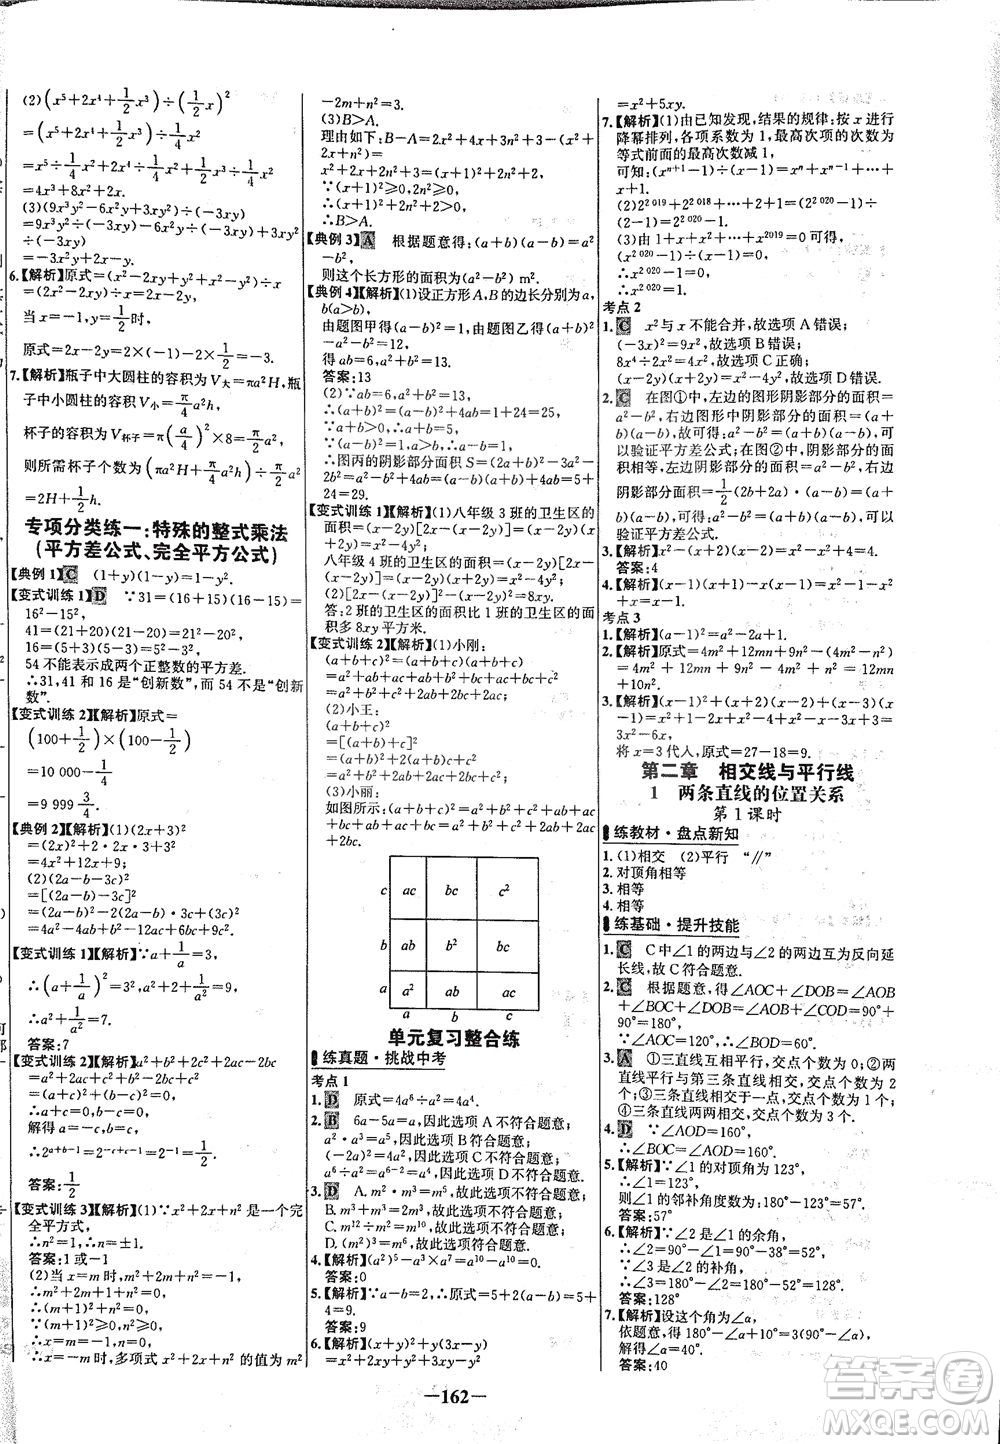 (2)(x⁵+2x⁴+1/2x³)÷(1/2x)²
=(x⁵+2x⁴+1/2x³)÷1/4x²
=x⁵÷1/4x²+2x⁴÷1/4x²+1/2x³÷1/4x²
=4x³+8x²+2x.
(3)(9x³y²-6x²y+3xy²)÷(-3xy)
=9x³y²÷(-3xy)-6x²y÷(-3xy)+3xy²
÷(-3xy)
=-3x²y+2x-y.
6.【解析】原式=(x²-2xy+y²+x²-y²)÷x
=(2x²-2xy)÷x=2x-2y.
当x=-1,y=1/2时,
原式=2x-2y=2×(-1)-2×1/2=-3.
7.【解析】瓶子中大圆柱的容积为V大=πa²H,瓶
子中小圆柱的容积为V小=π/4a²h,
杯子的容积为V杯子=π(a/4)²×8=π/2a²,
则所需杯子个数为(πa²H+π/4a²h)÷π/2a²
=2H+1/2h.
专项分类练一:特殊的整式乘法
(平方差公式、完全平方公式)
【典例1】C (1+y)(1-y)=1-y².
【变式训练1】D ∵31=(16+15)(16-15)=
16²-15²,
41=(21+20)(21-20)=21²-20²,
16=(5+3)(5-3)=5²-3²,
54不能表示成两个正整数的平方差.
∴31,41和16是“创新数”,而54不是“创新
数”.
【变式训练2】【解析】原式=
(100+1/2)×(100-1/2)
=10 000-1/4
=9 999 3/4.
【典例2】【解析】(1)(2x+3)²
=(2x)²+2·2x·3+3²
=4x²+12x+9;
(2)(2a-b-3c)²
=[(2a-b)-3c]²
=(2a-b)²-2(2a-b)·3c+(3c)²
=4a²-4ab+b²-12ac+6bc+9c².
【变式训练1】【解析】∵a+1/a=3,
∴(a+1/a)²=3²,a²+2+1/a²=9.
∴a²+1/a²=7.
答案:7
【变式训练2】【解析】a²+b²+2c²+2ac-2bc
=(a²+2ac+c²)+(b²-2bc+c²)
=(a+c)²+(b-c)²=0,
∴a+c=0,b-c=0,a+b=0.
∴2^(a+b-1)=2^(-1)=1/2.
答案:1/2
【变式训练3】【解析】(1)∵x²+2x+n²是一个完
全平方式,
∴n²=1,∴n=±1.
答案:1或-1
(2)当x=m时,m²+2m+n²=-1,
∴m²+2m+1+n²=0.
∴(m+1)²+n²=0.
∵(m+1)²≥0,n²≥0,
∴x=m=-1,n=0.
∴x=-m时,多项式x²+2x+n²的值为m²
-2m+n²=3.
(3)B>A.
理由如下:B-A=2x²+4x+2n²+3-(x²+
2x+n²)=x²+2x+n²+3=(x+1)²+n²+2.
∵(x+1)²≥0,n²≥0,
∴(x+1)²+n²+2>0.
∴B>A.
【典例3】A 根据题意得:(a+b)(a-b)=a²
-b²,
则这个长方形的面积为(a²-b²) m².
【典例4】【解析】(1)设正方形A,B的边长分别为a,
b(a>b),
由题图甲得(a-b)²=1,由题图乙得(a+b)²
-a²-b²=12,
得出ab=6,a²+b²=13.
答案:13
(2)∵ab=6,a²+b²=13,
∴(a+b)²=a²+2ab+b²=25.
∵a+b>0,∴a+b=5,
∵(a-b)²=1,a-b>0,∴a-b=1.
∴图丙的阴影部分面积S=(2a+b)²-3a²-
2b²=a²-b²+4ab=(a+b)(a-b)+4ab=5+
24=29.
【变式训练1】【解析】(1)八年级3班的卫生区的
面积=(x-2y)[x-(x-2y)-(x-2y)]
=(x-2y)(4y-x);
八年级4班的卫生区的面积=(x-2y)[2x-
(x-2y)]=x²-4y²;
(2)[2x-(x-2y)]²-(x-2y)²=8xy.
答:2班的卫生区的面积比1班的卫生区的面
积多8xy平方米.
【变式训练2】【解析】(1)小刚:
(a+b+c)²=(a+b+c)(a+b+c)
=a²+ab+ac+ba+b²+bc+ca+cb+c²
=a²+b²+c²+2ab+2bc+2ac;
(2)小王:
(a+b+c)²
=[(a+b)+c]²
=(a+b)²+2(a+b)c+c²
=a²+b²+2ab+2ac+2bc+c²;
(3)小丽:
如图所示:(a+b+c)²=a²+b²+c²+2ab+
2bc+2ac.
c ac bc c²
b ab b² bc
a a² ab ac
a b c
单元复习整合练
练真题·挑战中考
考点1
1.D 原式=4a⁶÷a²=4a⁴.
2.B 6a-5a=a,因此选项A不符合题意;
a²·a³=a⁵,因此选项B符合题意;
(-2a)²=4a²,因此选项C不符合题意;
a⁶÷a²=a⁴,因此选项D不符合题意.
3.D A.m²·m³=m⁵,故此选项不合题意;
B.m³+m³=2m³,故此选项不合题意;
C.m¹²÷m²=m¹⁰,故此选项不合题意;
D.(m²)³=m⁶,故此选项符合题意.
4.【解析】(a²)⁵-a³×a⁷=a¹⁰-a¹⁰=0.
答案:0
5.【解析】∵a-b=2,∴原式=5+2(a-b)=5+
4=9.
答案:9
6.【解析】(x+y)²+y(3x-y)
=x²+2xy+y²+3xy-y²
=x²+5xy.
7.【解析】(1)由已知发现,结果的规律:按x进行
降幂排列,各项系数为1,最高次项的次数为
等式前面的最高次数减1,
可知:(xⁿ⁺¹-1)÷(x-1)=xⁿ+xⁿ⁻¹+…+x+1;
(2)2²⁰¹⁹+2²⁰¹⁸+…+2+1=(2²⁰²⁰-1)÷
(2-1)=2²⁰²⁰-1;
(3)∵1+x+x²+…+x²⁰¹⁹=0,
∴(x²⁰²⁰-1)÷(x-1)=0.
∴x²⁰²⁰-1=0.
∴x²⁰²⁰=1.
考点2
1.C x²与x不能合并,故选项A错误;
(x-y)²=x²-2xy+y²,故选项B错误;
8x⁴÷2x=4x³,故选项C正确;
(x-2y)(x+2y)=x²-4y²,故选项D错误.
2.C 在图①中,左边的图形阴影部分的面积=
a²-b²,右边图形中阴影部分的面积=(a+
b)(a-b),故可得:a²-b²=(a+b)(a-b),可
以验证平方差公式;在图②中,阴影部分的面
积相等,左边阴影部分的面积=a²-b²,右边
阴影部分面积=1/2(2a+2b)·(a-b)=(a+
b)(a-b),可得:a²-b²=(a+b)(a-b),可以
验证平方差公式.
3.【解析】
答案:4
4.【解析】(x+1)(x-1)+x(2-x)=x²-1+2x
-x²=2x-1.
考点3
1.【解析】(a-1)²=a²-2a+1.
2.【解析】原式=4m²+12mn+9n²-(4m²-n²)
=4m²+12mn+9n²-4m²+n²=12mn+
10n².
3.【解析】(x-1)²+(x+2)(x-2)+(x-3)(x
-1)=x²-2x+1+x²-4+x²-4x+3=
3x²-6x,
将x=3代入,原式=27-18=9.
第二章 相交线与平行线
1 两条直线的位置关系
第1课时
练教材·盘点新知
1.(1)相交 (2)平行 “∥”
2.对顶角相等
3.相等
4.相等
练基础·提升技能
1.C C中∠1的两边与∠2的两边互为反向延
长线,故C符合题意.
2.C 根据题意,得∠AOC+∠DOB=∠AOB
+∠BOC+∠DOB=∠AOB+∠COD=90°
+90°=180°.
3.A ①三直线互相平行,交点个数为0;②两
直线平行与第三条直线相交,交点个数为
2;③三条直线相交于一点,交点个数为1;
④三条直线两两相交,交点个数为3个.
4.D ∵∠AOD=160°,
∴∠BOC=∠AOD=160°.
5.【解析】∵∠1的对顶角为123°,
∴∠1=123°,
则∠1的邻补角度数为:180°-123°=57°.
答案:57°
6.【解析】∵∠2是∠1的余角,
∴∠2=90°-∠1=90°-38°=52°.
∵∠3是∠2的补角,
∴∠3=180°-∠2=180°-52°=128°.
答案:128°
7.【解析】设这个角为∠α,
依题意,得180°-∠α+10°=3(90°-∠α),
解得∠α=40°.
答案:40
-162-
答案圈
MXQE.COM